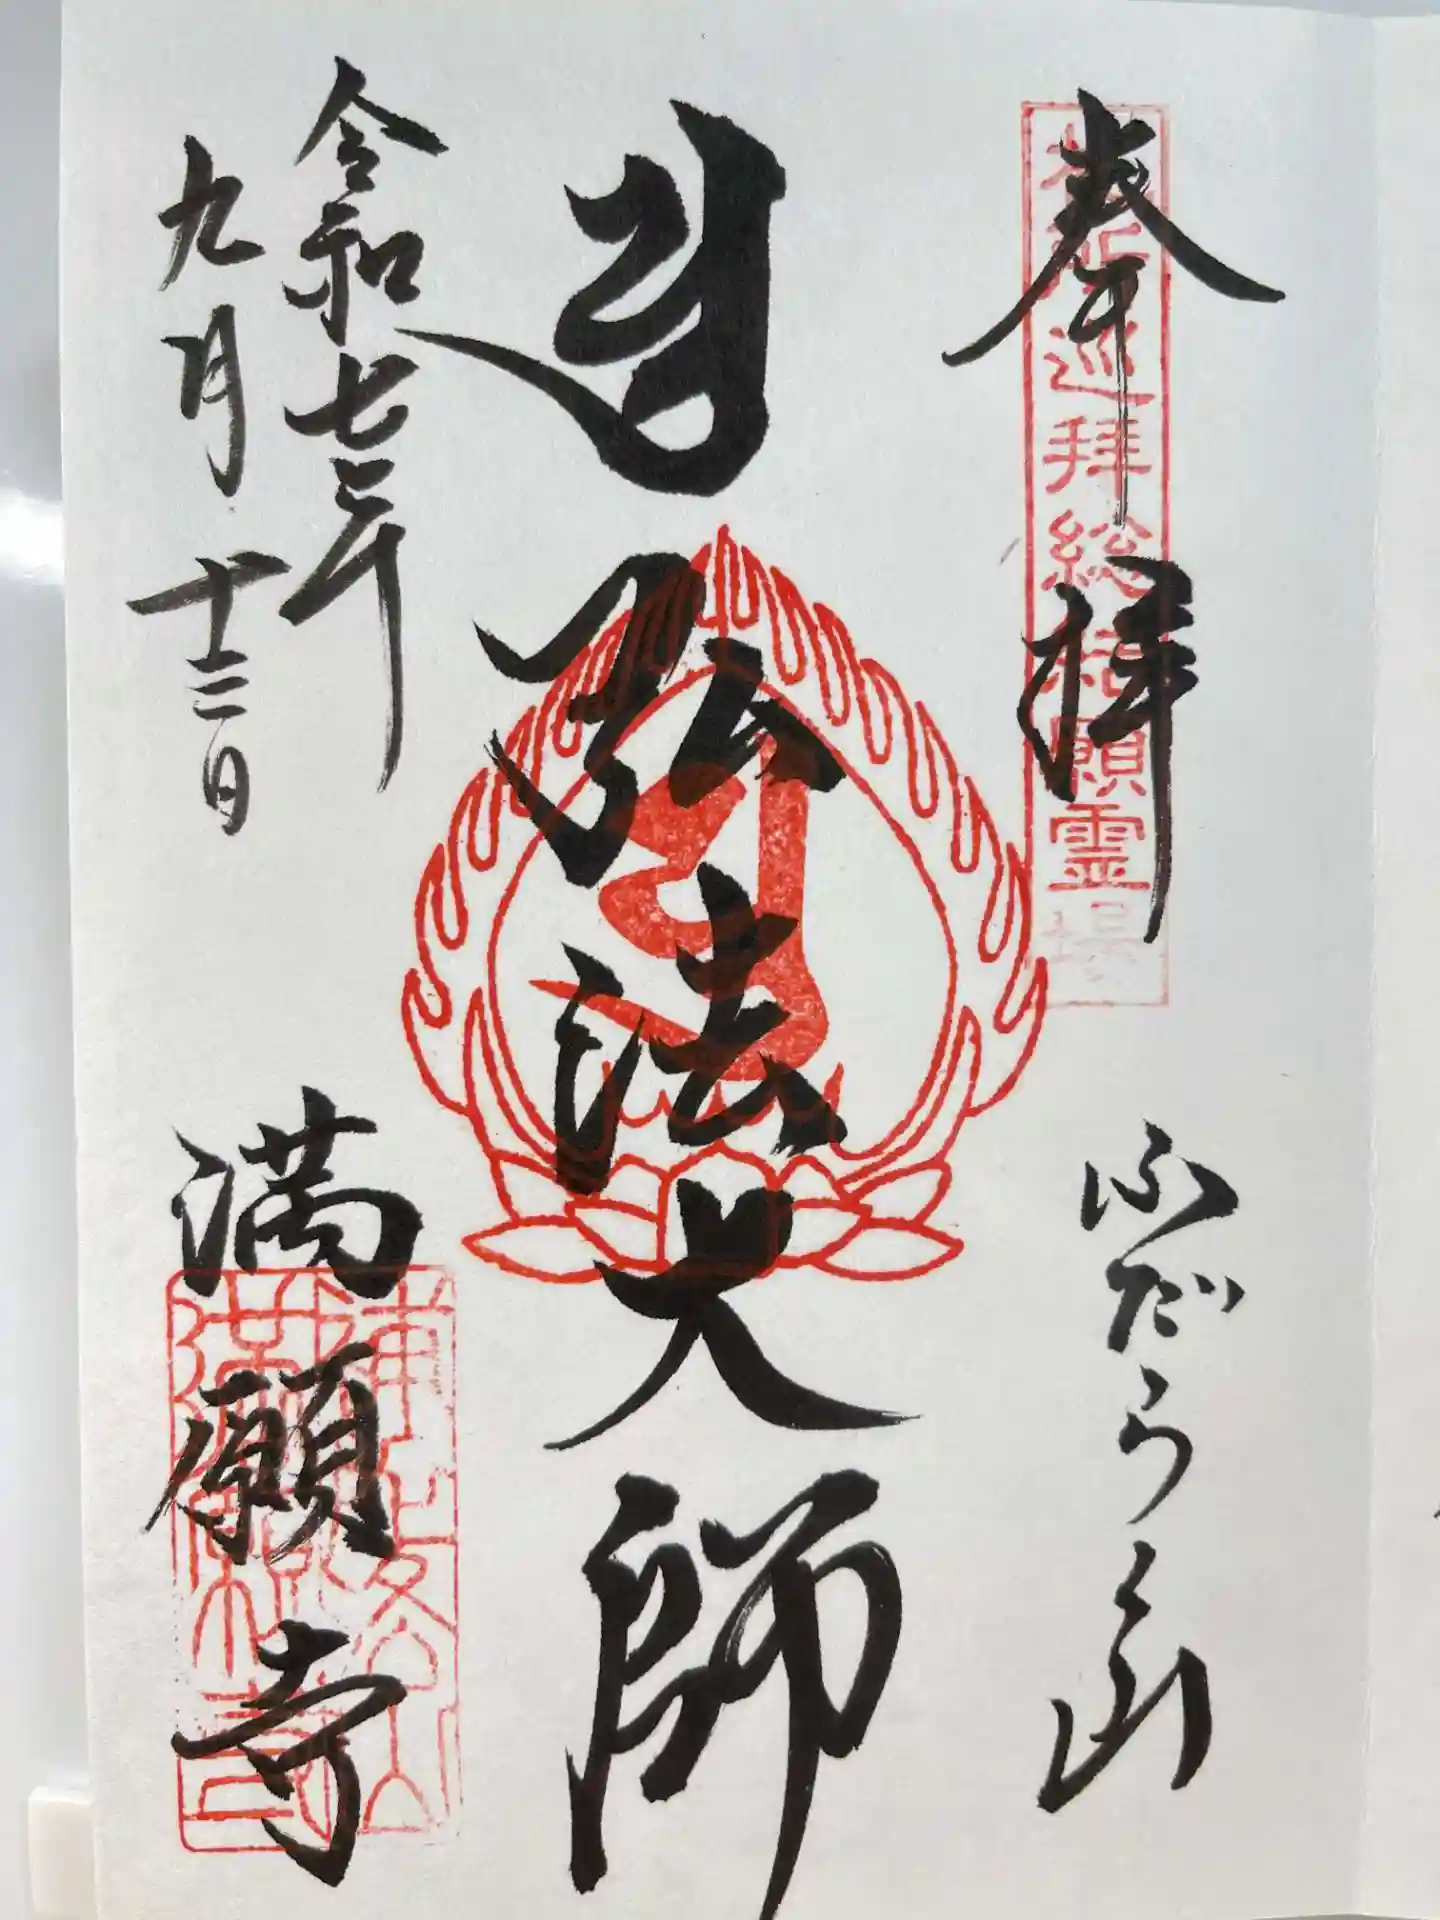 奉拝
札所巡拝総結願霊場
ふだらく山
弘法大師
令和七年
九月十三日
満願寺